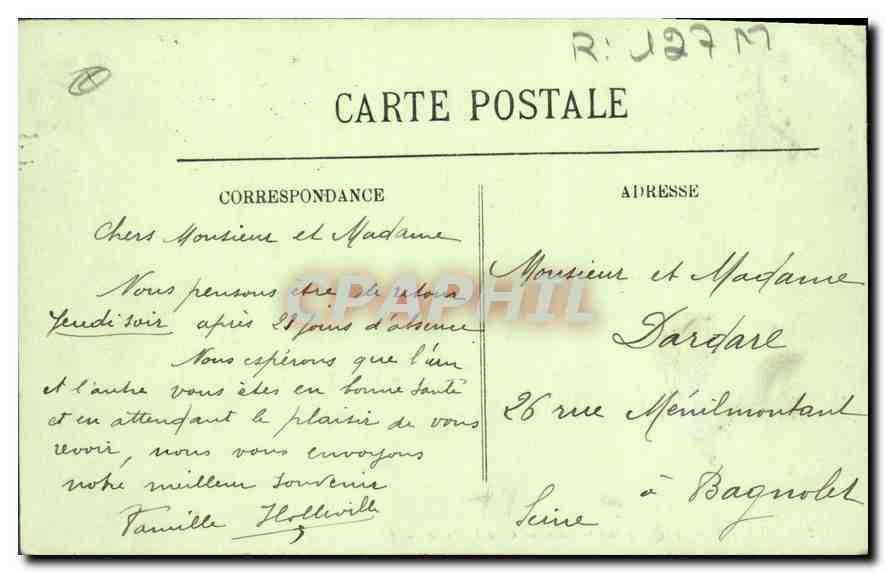 R: 127 M
CARTE POSTALE
CORRESPONDANCE
Chers Monsieur et Madame
Nous pensons être de retour
Jeudi soir après 21 jours d'absence
Nous espérons que l'un
et l'autre vous êtes en bonne santé
et en attendant le plaisir de vous
revoir, nous vous envoyons
notre meilleur souvenir
Famille Holleville
ADRESSE
Monsieur et Madame
Dardare
26 rue Ménilmontant
à Bagnolet
Seine
CPAPHIL